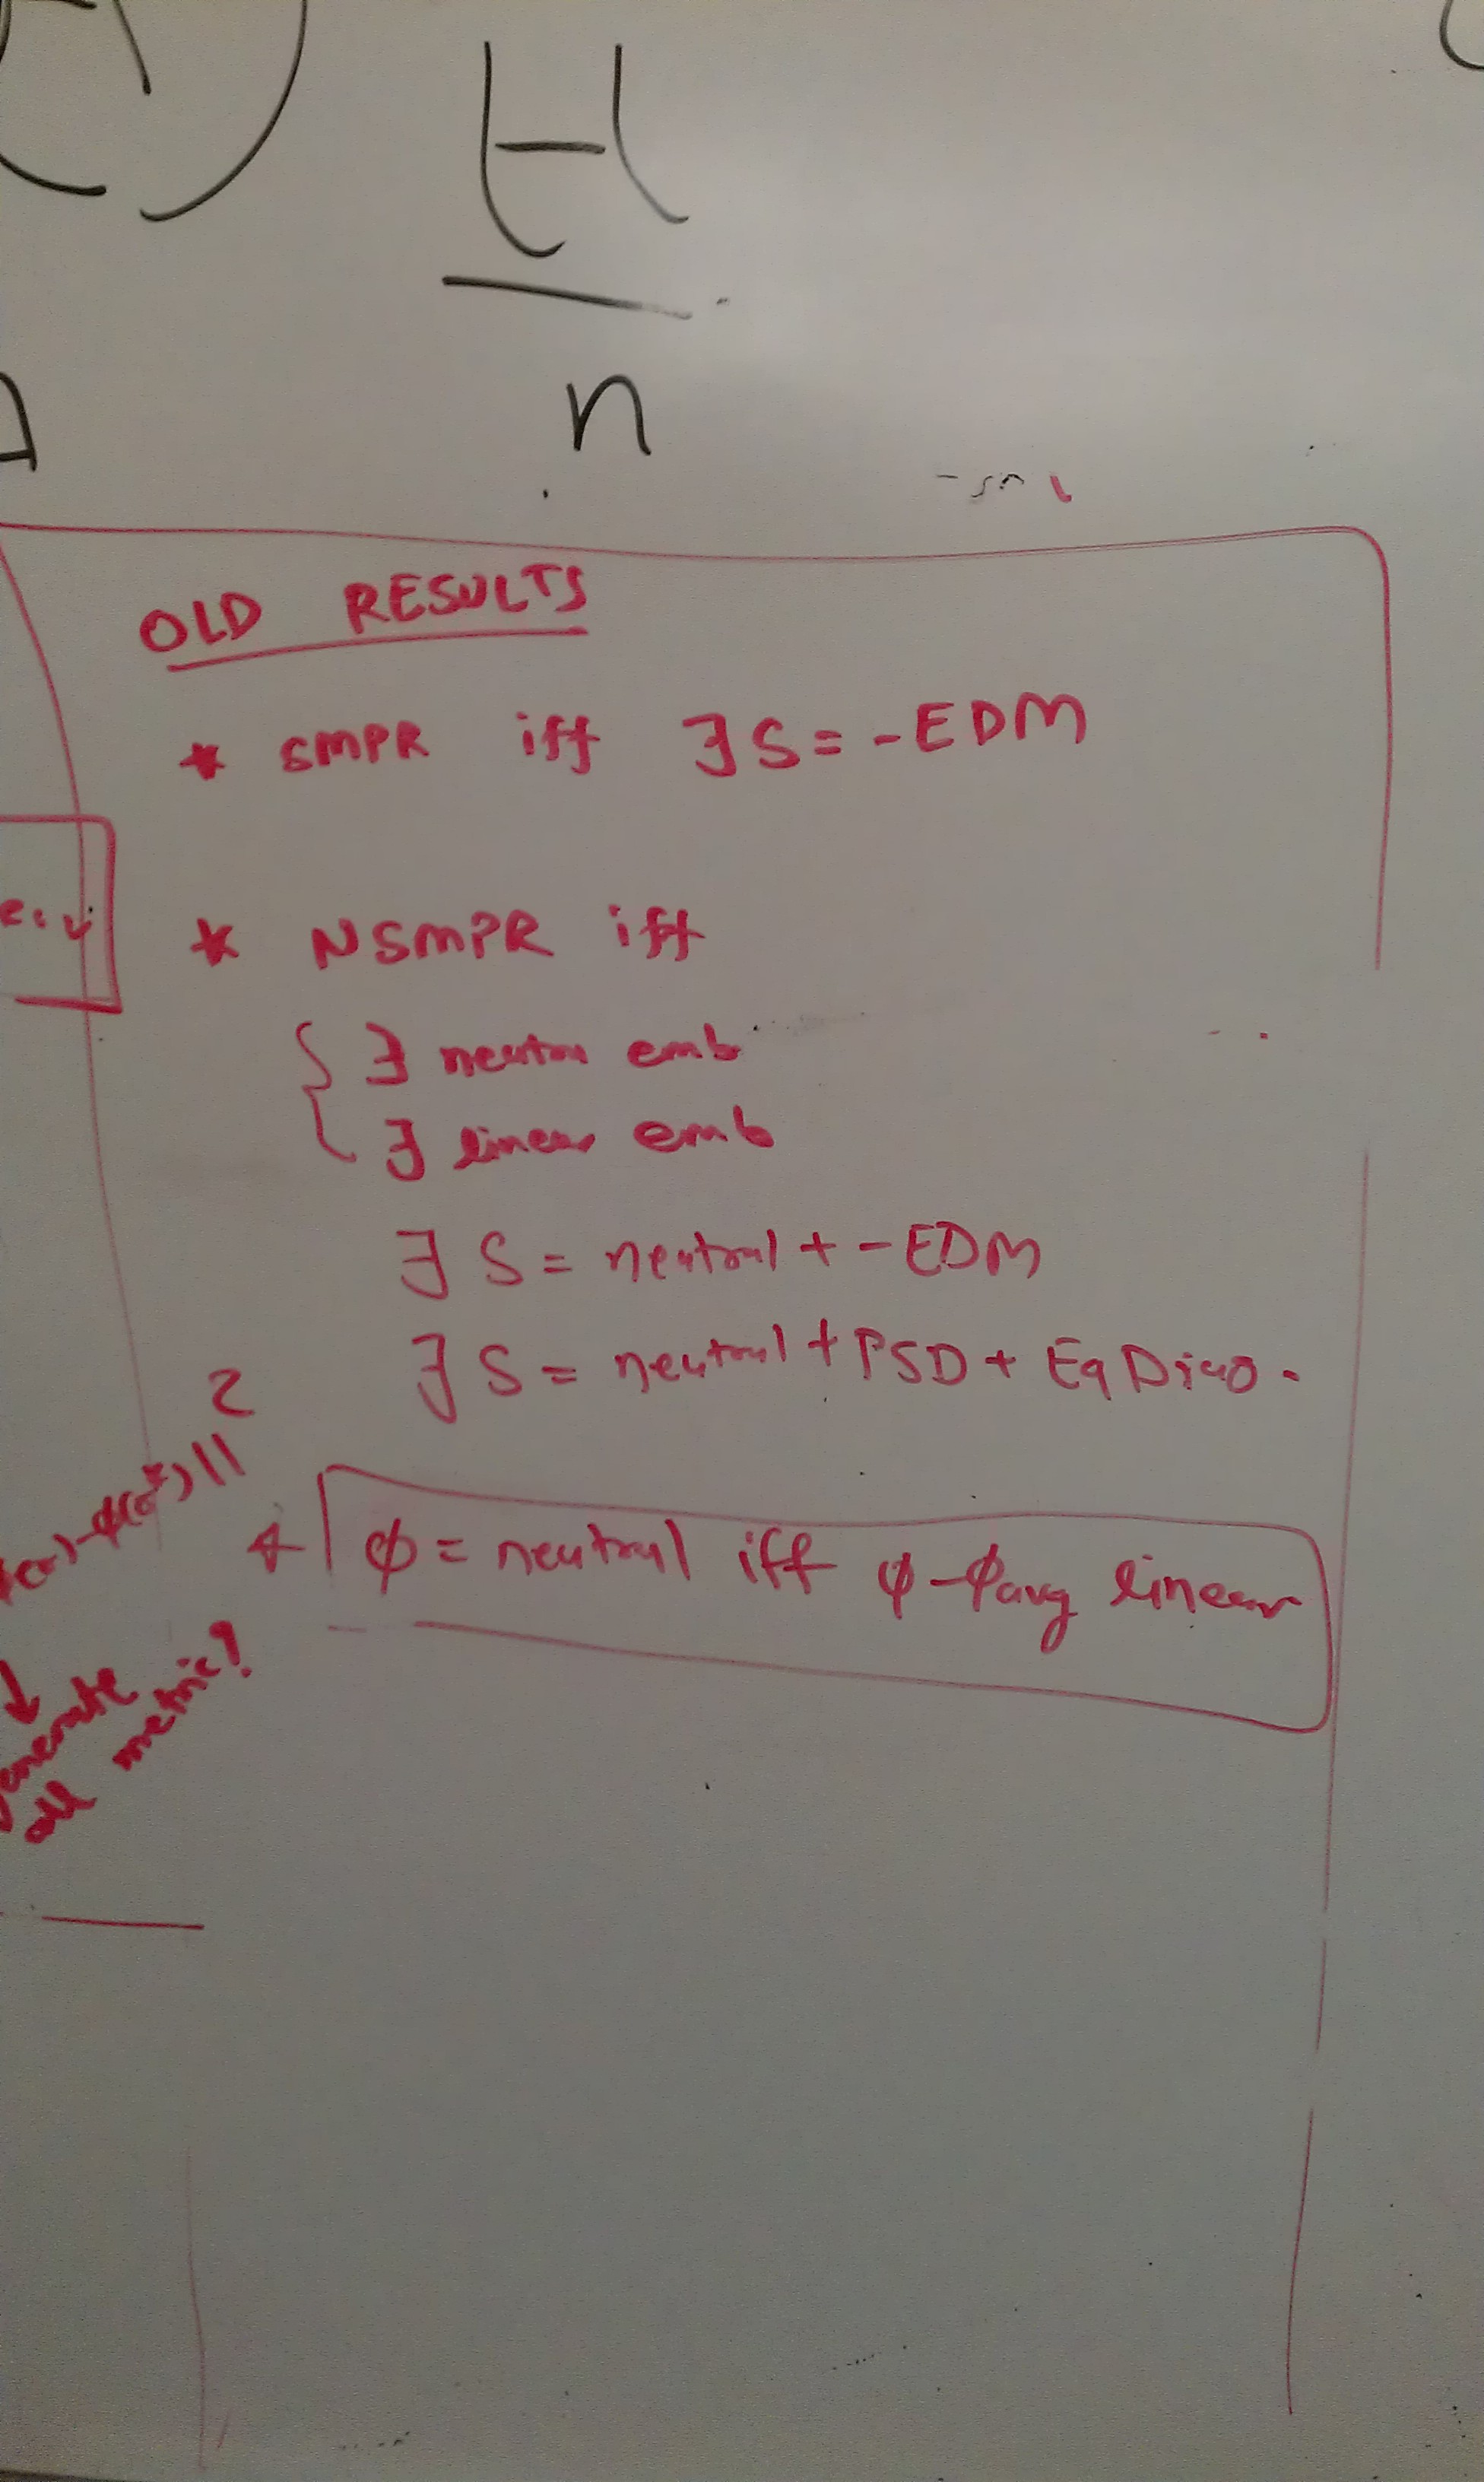 H
n
OLD RESULTS
* SMPR iff ∃ S = -EDM
* NSMPR iff
{ ∃ neutral emb
∃ linear emb
∃ S = neutral + -EDM
∃ S = neutral + PSD + EqDiag.
* φ = neutral iff φ - φavg linear
) - φ(σ*) || 2
↓
enerate
all metric!